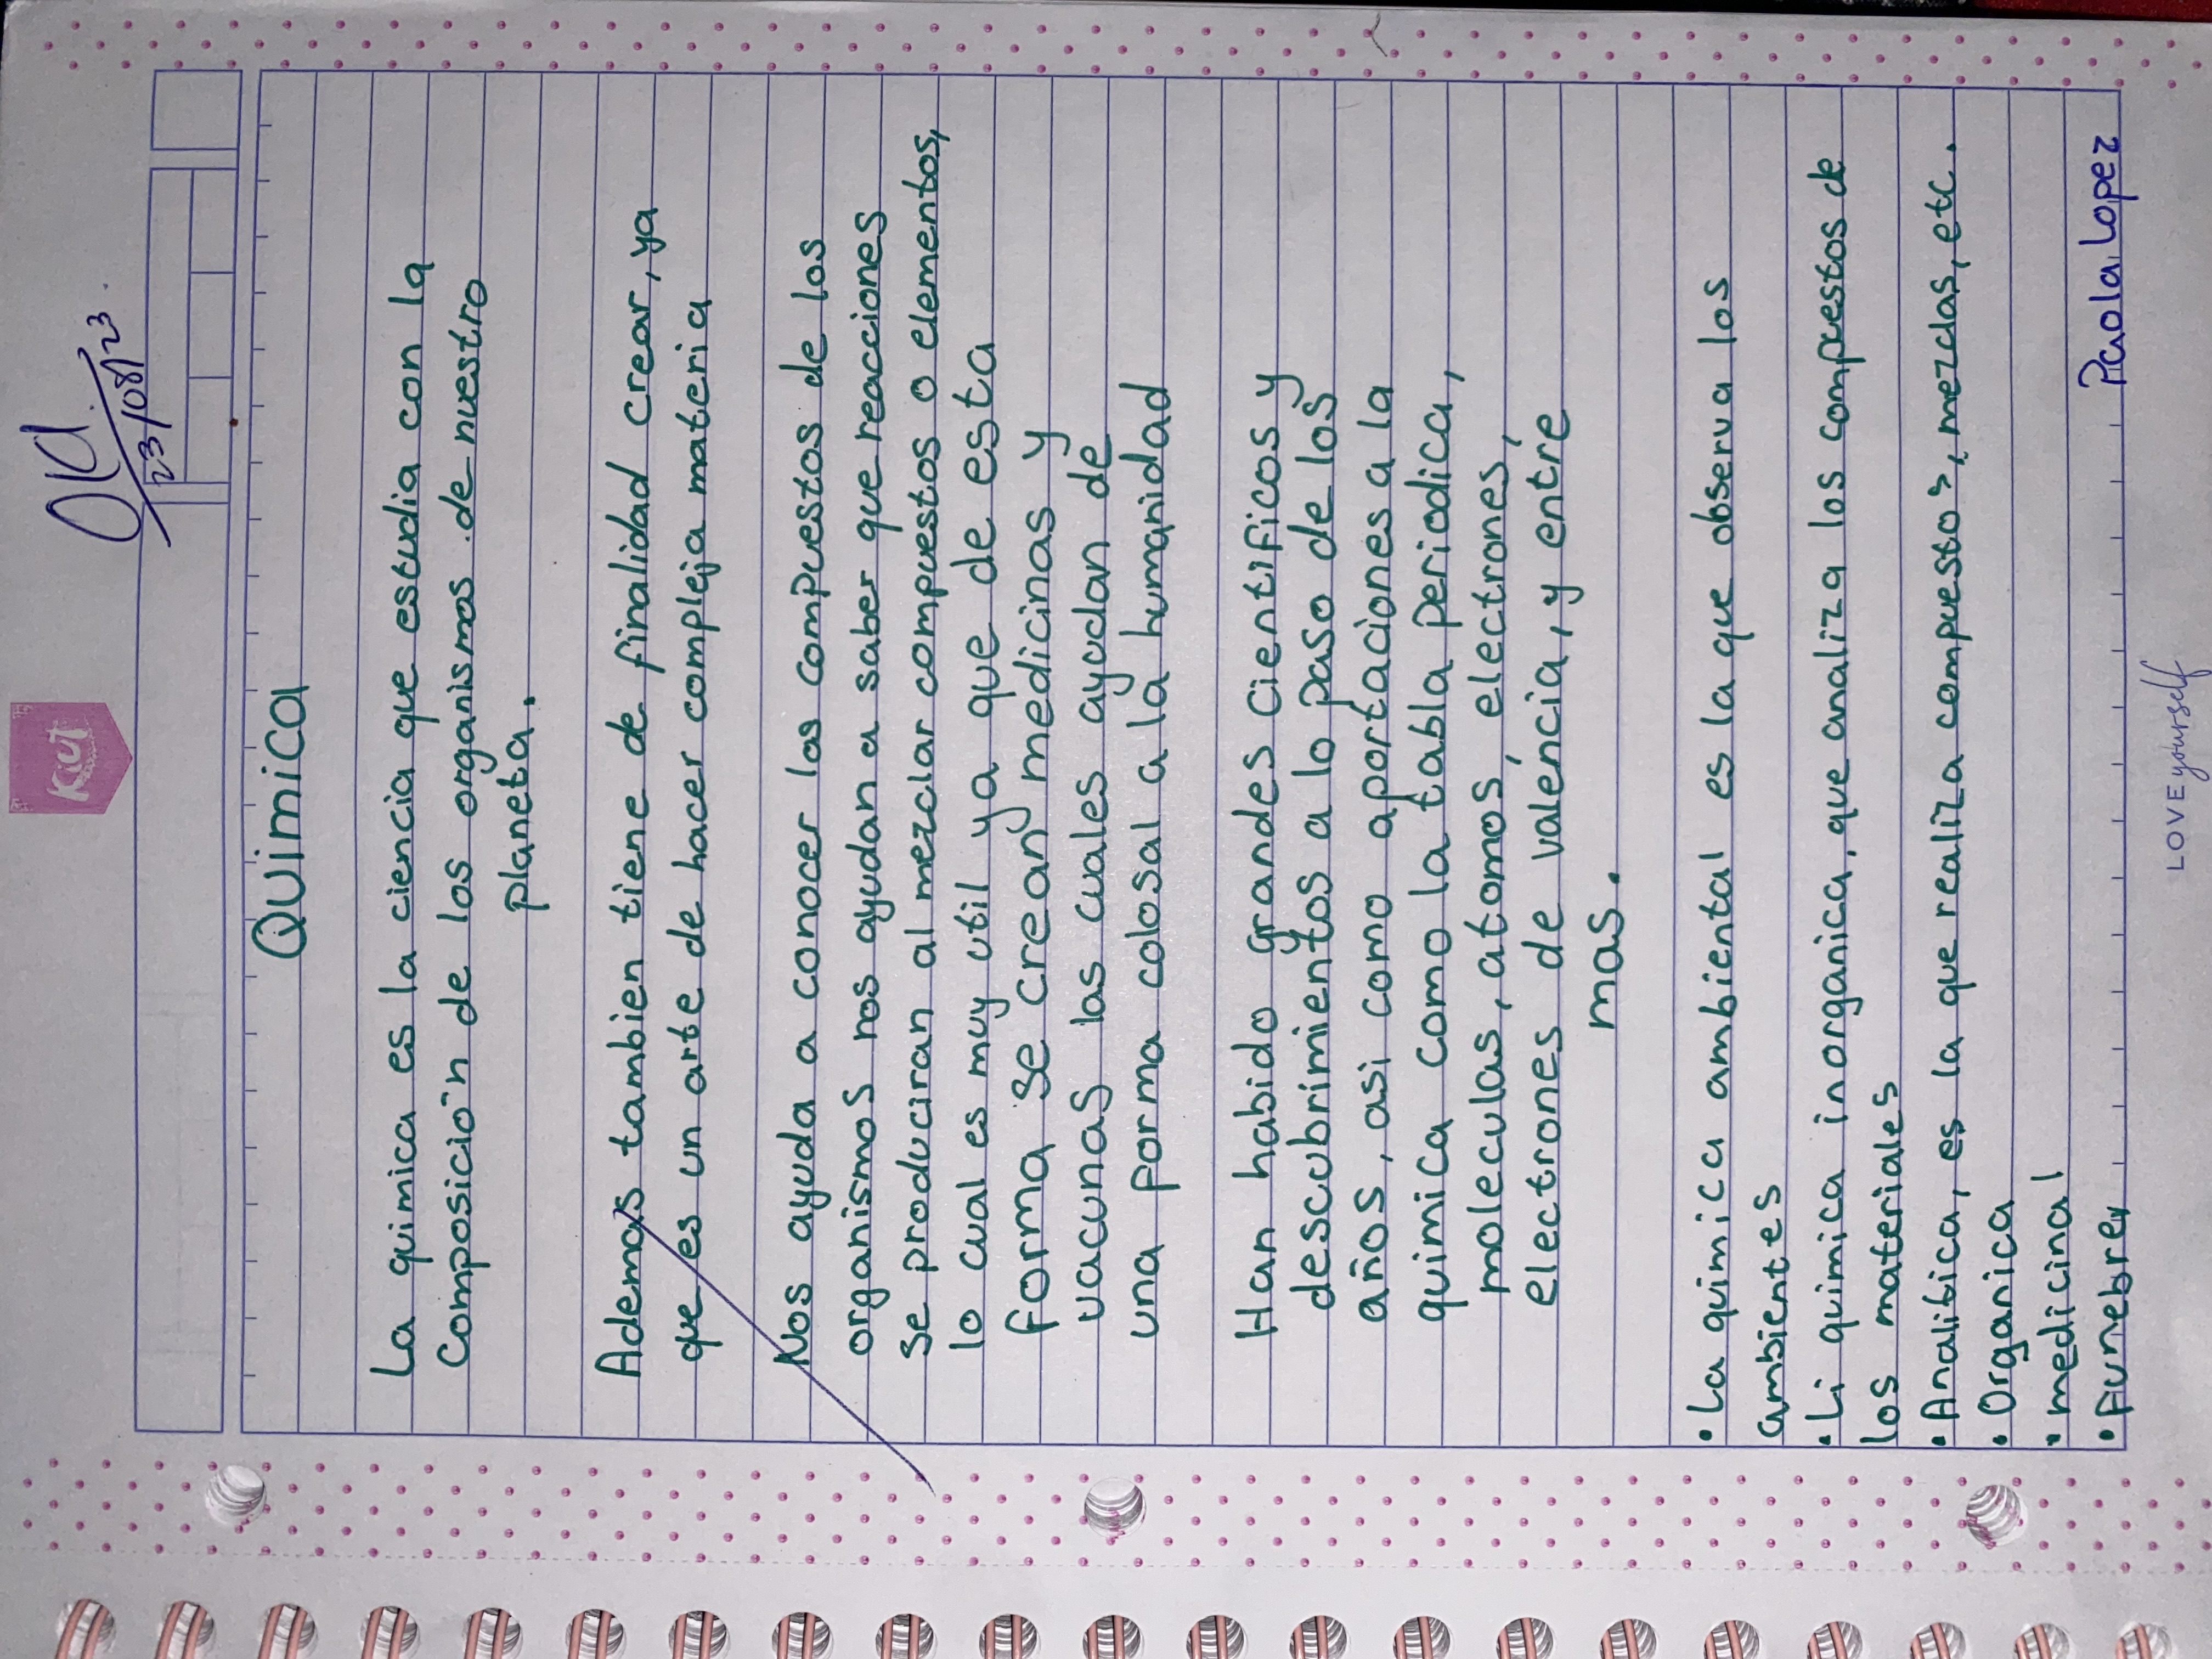 Kiut
Ok.
23/08/23.
Quimica
La quimica es la ciencia que estudia con la
composición de los organismos de nuestro
planeta.
Ademas tambien tiene de finalidad crear, ya
que es un arte de hacer compleja materia
Nos ayuda a conocer los compuestos de los
organismos nos ayudan a saber que reacciones
se produciran al mezclar compuestos o elementos,
lo cual es muy util ya que de esta
forma se crean medicinas y
vacunas las cuales ayudan de
una forma colosal a la humanidad
Han habido grandes cientificos y
descubrimientos a lo paso de los
años, asi como aportaciones a la
quimica como la tabla periodica,
moleculas, atomos, electrones,
electrones de valencia, y entre
mas.
• La quimica ambiental es la que observa los
ambientes
• Li quimica inorganica, que analiza los compuestos de
los materiales
• Analitica, es la que realiza compuestos, mezclas, etc.
• Organica
• medicinal
• Funebre
Paola Lopez
LOVE yourself